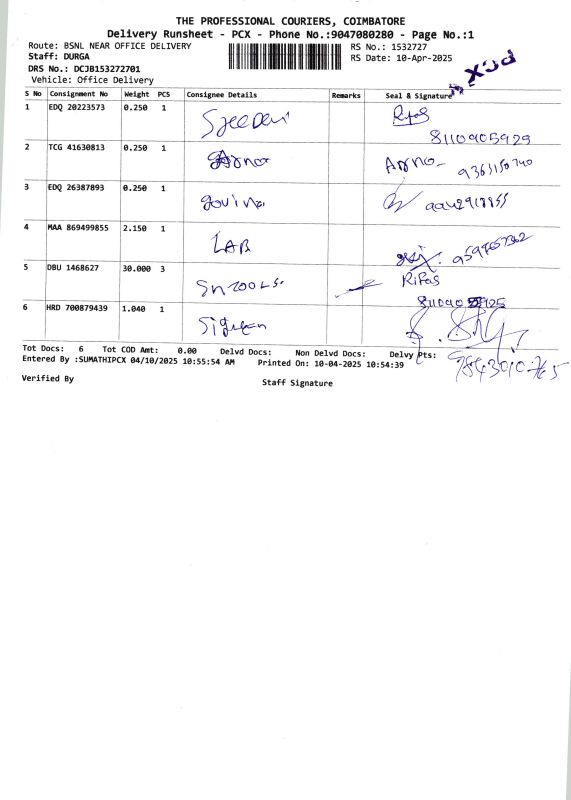 THE PROFESSIONAL COURIERS, COIMBATORE
Delivery Runsheet - PCX - Phone No.:9047080280 - Page No.:1
Route: BSNL NEAR OFFICE DELIVERY
RS No.: 1532727
Staff: DURGA
RS Date: 10-Apr-2025
DRS No.: DCJB153272701
PCX
Vehicle: Office Delivery
S No Consignment No Weight PCS Consignee Details Remarks Seal & Signature
1 EDQ 20223573 0.250 1 Rifas
8110905929
2 TCG 41630813 0.250 1
3 EDQ 26387893 0.250 1
4 MAA 869499855 2.150 1 LAB
5 DBU 1468627 30.000 3 Rifas
6 HRD 700879439 1.040 1
Tot Docs: 6 Tot COD Amt: 0.00 Delvd Docs: Non Delvd Docs: Delvy Pts:
Entered By :SUMATHIPCX 04/10/2025 10:55:54 AM Printed On: 10-04-2025 10:54:39
Verified By
Staff Signature